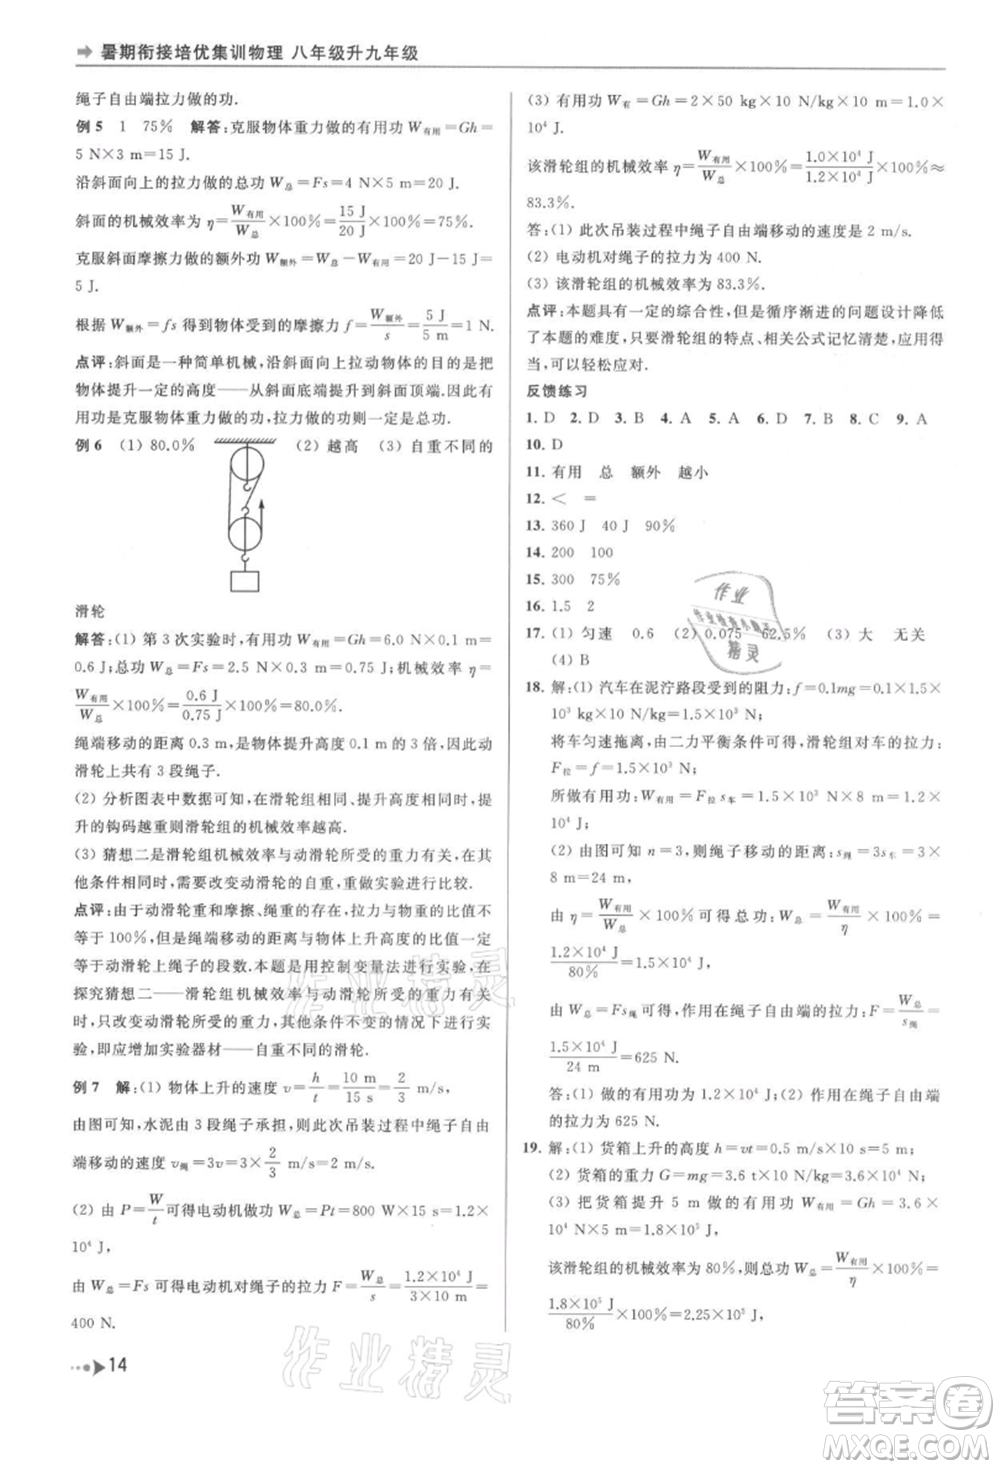 暑期衔接培优集训物理 八年级升九年级
绳子自由端拉力做的功.
例 5 1 75% 解答:克服物体重力做的有用功 W有用=Gh=
5 N×3 m=15 J.
沿斜面向上的拉力做的总功 W总=Fs=4 N×5 m=20 J.
斜面的机械效率为 η=W有用/W总×100%=15 J/20 J×100%=75%.
克服斜面摩擦力做的额外功 W额外=W总-W有用=20 J-15 J=
5 J.
根据 W额外=fs 得到物体受到的摩擦力 f=W额外/s=5 J/5 m=1 N.
点评:斜面是一种简单机械,沿斜面向上拉动物体的目的是把
物体提升一定的高度——从斜面底端提升到斜面顶端.有
用功是克服重力做的功,拉力做的功则一定是总功.
例 6 (1) 80.0% (2) 越高 (3) 自重不同的
滑轮
解答:(1) 第 3 次实验时,有用功 W有用=Gh=6.0 N×0.1 m=
0.6 J;总功 W总=Fs=2.5 N×0.3 m=0.75 J;机械效率 η=
W有用/W总×100%=0.6 J/0.75 J×100%=80.0%.
绳端移动的距离 0.3 m,是物体提升高度 0.1 m 的 3 倍,因此动
滑轮上共有 3 段绳子.
(2) 分析图表中数据可知,在滑轮组相同、提升高度相同时,提
升的钩码越重则滑轮组的机械效率越高.
(3) 猜想二是滑轮组机械效率与动滑轮所受的重力有关,在其
他条件相同时,需要改变动滑轮的自重,重做实验进行比较.
点评:由于动滑轮重和摩擦、绳重的存在,拉力与机械效率一定
小于 100%,但是绳端移动的距离与物体上升高度的比值一定
是动滑轮上绳子的段数.本题是用控制变量法进行实验,在
探究猜想二——滑轮组机械效率与动滑轮所受的重力有关
时,只改变动滑轮所受的重力,其他条件不变的情况下做实验,
即应增加实验器材——自重不同的滑轮.
例 7 解:(1) 物体上升的速度 v=h/t=10 m/15 s=2/3 m/s,
由图可知,水泥由 3 段绳子承担,所以此次吊装过程中绳子自由
端移动的速度 v绳=3v=3×2/3 m/s=2 m/s.
(2) 由 P=W/t可得电动机做功 W总=Pt=800 W×15 s=1.2×
10⁴ J,
由 W总=Fs 可得电动机对绳子的拉力 F=W总/s=1.2×10⁴ J/30 m=
400 N.
14
(3) 有用功 W有=Gh=2×50 kg×10 N/kg×10 m=1.0×
10⁴ J.
该滑轮组的机械效率 η=W有用/W总×100%=1.0×10⁴ J/1.2×10⁴ J×100%≈
83.3%.
答:(1) 此次吊装过程中绳子自由端移动的速度是 2 m/s.
(2) 电动机对绳子的拉力为 400 N.
(3) 该滑轮组的机械效率为 83.3%.
点评:本题具有一定的综合性,但是循序渐进的问题设计降低
了本题的难度,只要滑轮组的特点、相关公式记忆清楚,应用得
当,可以轻松应对.
反馈练习
1. D 2. D 3. B 4. A 5. A 6. D 7. B 8. C 9. A
10. D
11. 有用 总 额外 越小
12. < =
13. 360 J 40 J 90%
14. 200 100
15. 300 75%
16. 1.5 2
17. (1) 匀速 0.6 (2) 0.075 62.5% (3) 大 无关
(4) B
18. 解:(1) 汽车在泥泞路段受到的阻力:f=0.1mg=0.1×1.5×
10³ kg×10 N/kg=1.5×10³ N;
将车匀速拖离,由二力平衡条件可得,滑轮组对车的拉力:
F拉=f=1.5×10³ N;
所做有用功:W有用=F拉 s车=1.5×10³ N×8 m=1.2×
10⁴ J;
(2) 由图可知 n=3,则绳子移动的距离:s绳=3s车=3×
8 m=24 m,
由 η=W有用/W总 可得总功:W总=W有用/η=
1.2×10⁴ J/80%=1.5×10⁴ J,
由 W总=Fs绳 可得,作用在绳子自由端的拉力:F=W总/s绳=
1.5×10⁴ J/24 m=625 N.
答:(1) 做的有用功为 1.2×10⁴ J;(2) 作用在绳子自由端
的拉力为 625 N.
19. 解:(1) 货箱上升的高度 h=vt=0.5 m/s×10 s=5 m;
(2) 货箱的重力 G=mg=3.6 t×10 N/kg=3.6×10⁴ N;
(3) 把货箱提升 5 m 做的有用功 W有用=Gh=3.6×
10⁴ N×5 m=1.8×10⁵ J,
该滑轮组的机械效率为 80%,所以总功 W总=W有用/η=
1.8×10⁵ J/80%×100%=2.25×10⁵ J,
作业精灵
作业精灵
作业
精灵
答案圈
MXQE.COM